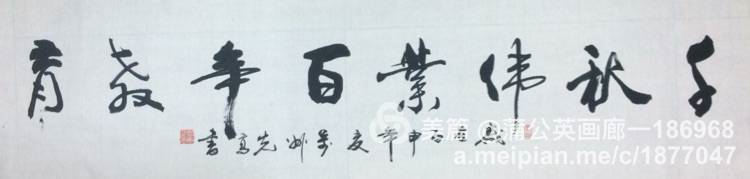 千秋伟業百年教育
申年夏州先高書
美篇 @蒲公英画廊一186968
a.meipian.me/c/1877047